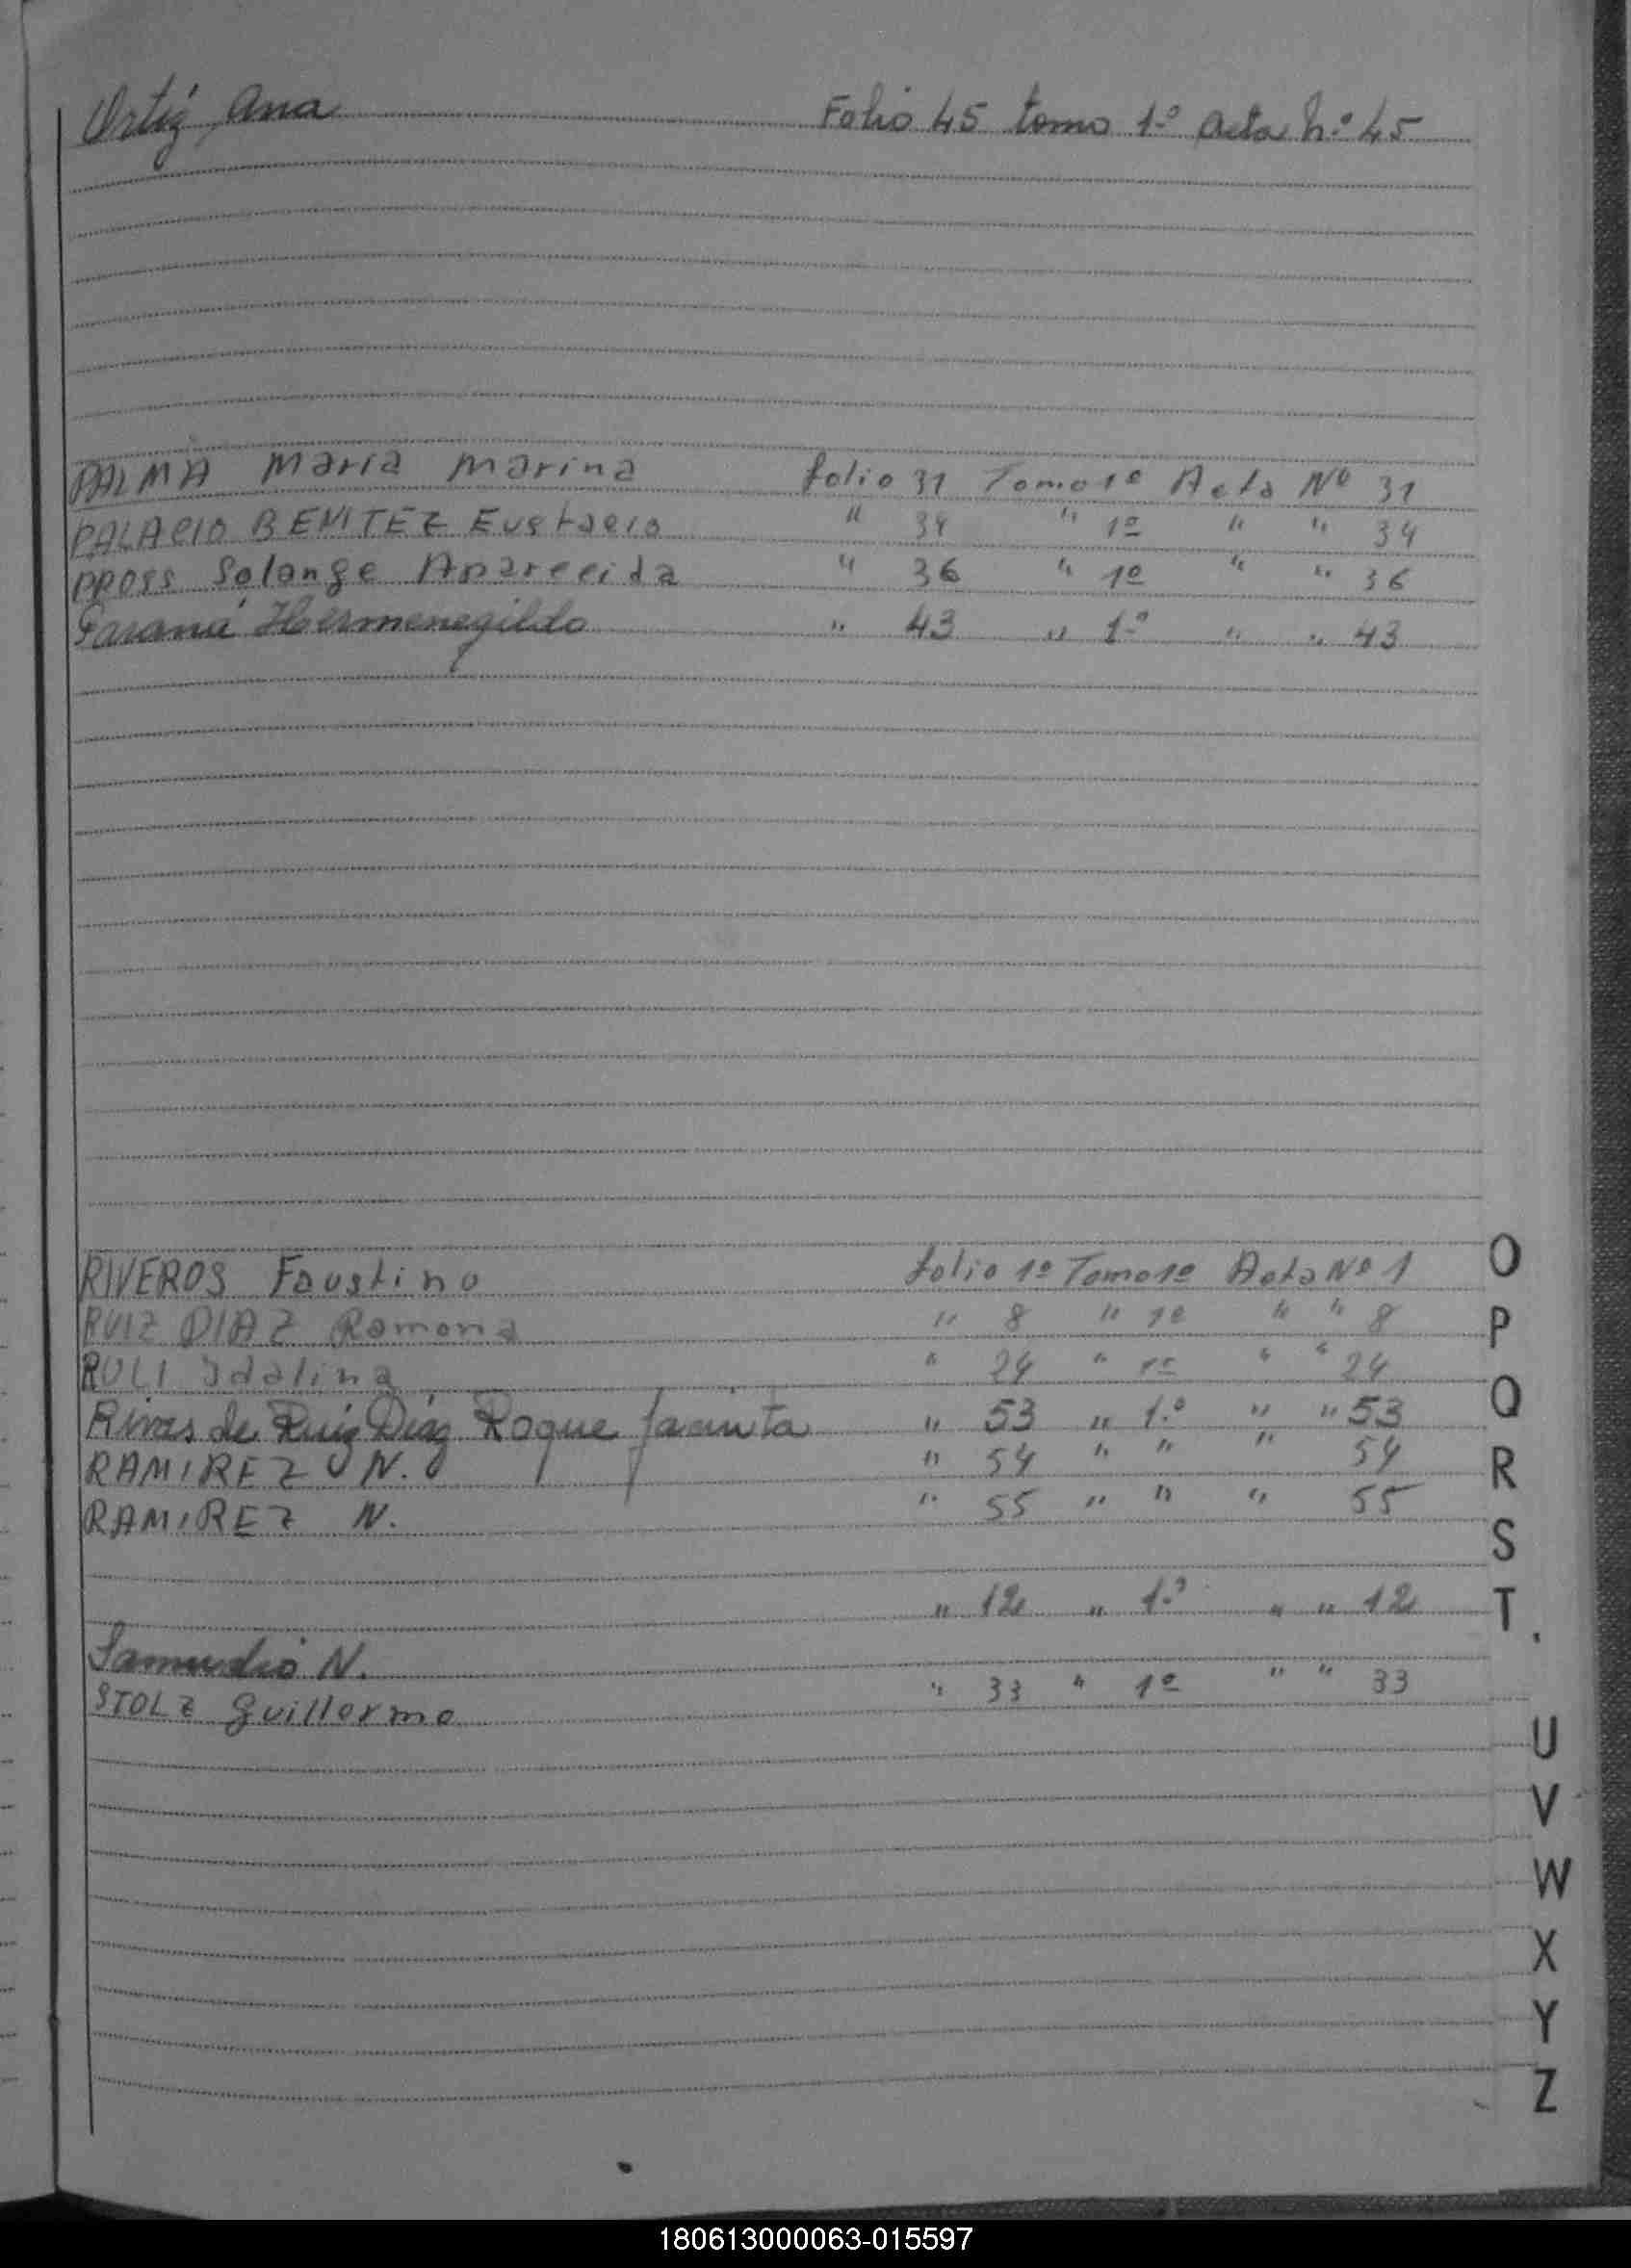 Ortíz Ana Folio 45 tomo 1º acta Nº 45
PALMA María Marina folio 31 Tomo 1º Acta Nº 31
PALACIO BENITEZ Eustacio " 34 " 1º " " 34
PROSS Solange Aparecida " 36 " 1º " " 36
Paraná Hermenegildo " 43 " 1º " " 43
RIVEROS Faustino folio 1º Tomo 1º Acta Nº 1
RUIZ DIAZ Ramona " 8 " 1º " " 8
ROLI Idalina " 24 " 1º " " 24
Rivas de Ruíz Díaz Roque Jacinta " 53 " 1º " " 53
RAMIREZ N. " 54 " " " 54
RAMIREZ N. " 55 " " " 55
Samudio N. " 12 " 1º " " 12
STOLZ Guillermo " 33 " 1º " " 33
O
P
Q
R
S
T
U
V
W
X
Y
Z
180613000063-015597